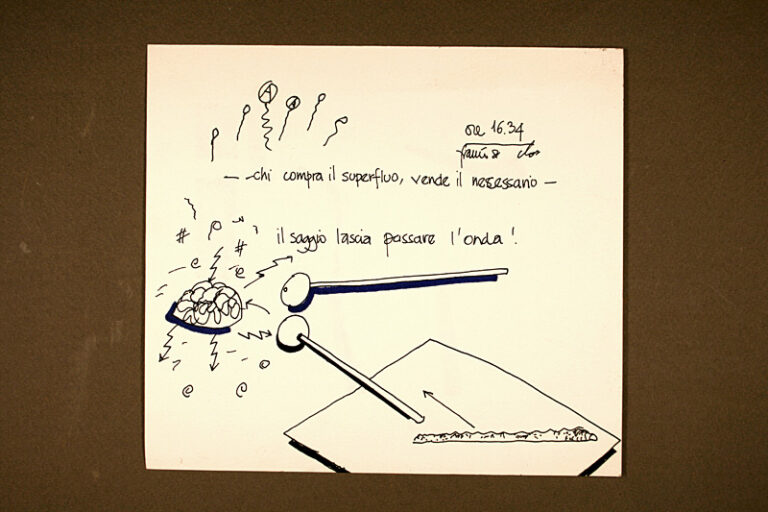 ore 16.34
— chi compra il superfluo, vende il necessario —
il saggio lascia passare l'onda!